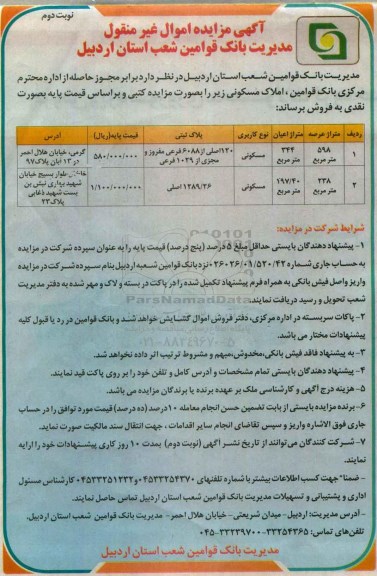 نوبت دوم
آگهی مزایده اموال غیر منقول
مدیریت بانک قوامین شعب استان اردبیل
مدیریت بانک قوامین شعب استان اردبیل در نظر دارد برابر مجوز حاصله از اداره محترم
مرکزی بانک قوامین ، املاک مسکونی زیر را بصورت مزایده کتبی و براساس قیمت پایه بصورت
نقدی به فروش برساند:
ردیف متراژ عرصه متراژ اعیان نوع کاربری پلاک ثبتی قیمت پایه(ریال) آدرس
۱ ۵۹۸ متر مربع ۳۴۴ متر مربع مسکونی ۱۲۰اصلی از۶۰۸۸ فرعی مفروز و مجزی از ۱۰۲۹ فرعی ۵۸۰/۰۰۰/۰۰۰ گرمی، خیابان هلال احمر در ۱۳ ابان پلاک۹۷
۲ ۲۳۸ متر مربع ۱۹۷/۴۰ متر مربع مسکونی ۱۲۸۹/۳۶ اصلی ۱/۱۰۰/۰۰۰/۰۰۰ بسیج خیابان شهید نبش بن بست شهید پلاک۲۲
شرایط شرکت در مزایده:
۱- پیشنهاد دهندگان بایستی حداقل مبلغ ۵ درصد (پنج درصد) قیمت پایه را به عنوان سپرده شرکت در مزایده
به حساب جاری شماره ۰۲۶۰۲۶/۰۱/۵۲۰/۴۲ نزد بانک قوامین شعبه اردبیل بنام سپرده شرکت در مزایده
واریز واصل فیش بانکی به همراه فرم پیشنهاد تکمیل شده را در پاکت در بسته و لاک و مهر شده به دفتر مدیریت
شعب تحویل و رسید دریافت نمایند.
۲- پاکات سربسته در اداره مرکزی، دفتر فروش اموال گشایش خواهد شد و بانک قوامین در رد یا قبول کلیه
پیشنهادات مختار می باشد.
۳- به پیشنهاد فاقد فیش بانکی،مخدوش،مبهم و مشروط ترتیب اثر داده نخواهد شد.
۴- پیشنهاد دهندگان بایستی تمام مشخصات و آدرس کامل و تلفن خود را بر روی پاکت قید نمایند.
۵- هزینه درج آگهی و کارشناسی ملک بر عهده برنده یا برندگان مزایده می باشد.
۶- برنده مزایده بایستی از بابت تضمین حسن انجام معامله ۱۰درصد (ده درصد) قیمت مورد توافق را در حساب
جاری فوق الاشاره واریز و سپس تقاضای انجام سایر اقدامات ، جهت انتقال سند مالکیت صورت نماید.
۷- شرکت کنندگان می توانند از تاریخ نشر آگهی (نوبت دوم) بمدت ۱۰ روز کاری پیشنهادات خود را ارایه
نمایند.
- ضمنا" جهت کسب اطلاعات بیشتر با شماره تلفنهای ۰۴۵۳۳۲۵۴۳۷۰و ۰۴۵۳۳۲۵۱۲۳۲ کارشناس مسئول
اداری و پشتیبانی و تسهیلات مدیریت بانک قوامین شعب استان اردبیل تماس حاصل نمایند.
- آدرس مدیریت: اردبیل- میدان شریعتی- خیابان هلال احمر- مدیریت بانک قوامین شعب استان اردبیل.
تلفن‌های تماس: ۳۳۲۵۴۳۶۵-۳۳۲۳۹۷۰۰-۰۴۵
مدیریت بانک قوامین شعب استان اردبیل